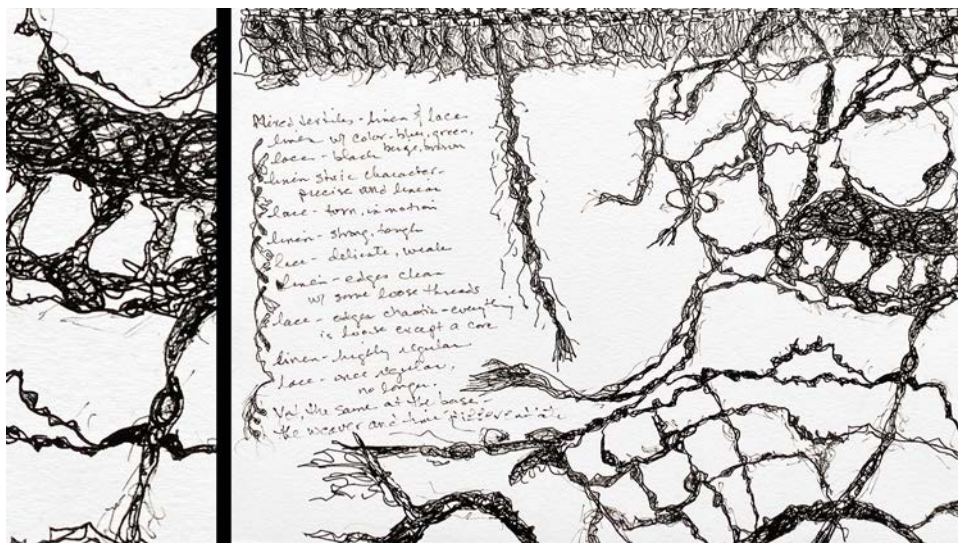 Mixed textiles - linen & lace
linen w/ color - blue, green,
lace - black beige, brown
linen static character -
precise and linear
lace - torn, in motion
linen - strong, tough
lace - delicate, weak
linen - edges clean
w/ some loose threads
lace - edges chaotic - everything
is loose except a core
linen - highly regular
lace - once regular,
no longer.
Yet, the same at the base.
the weaver and time differentiate